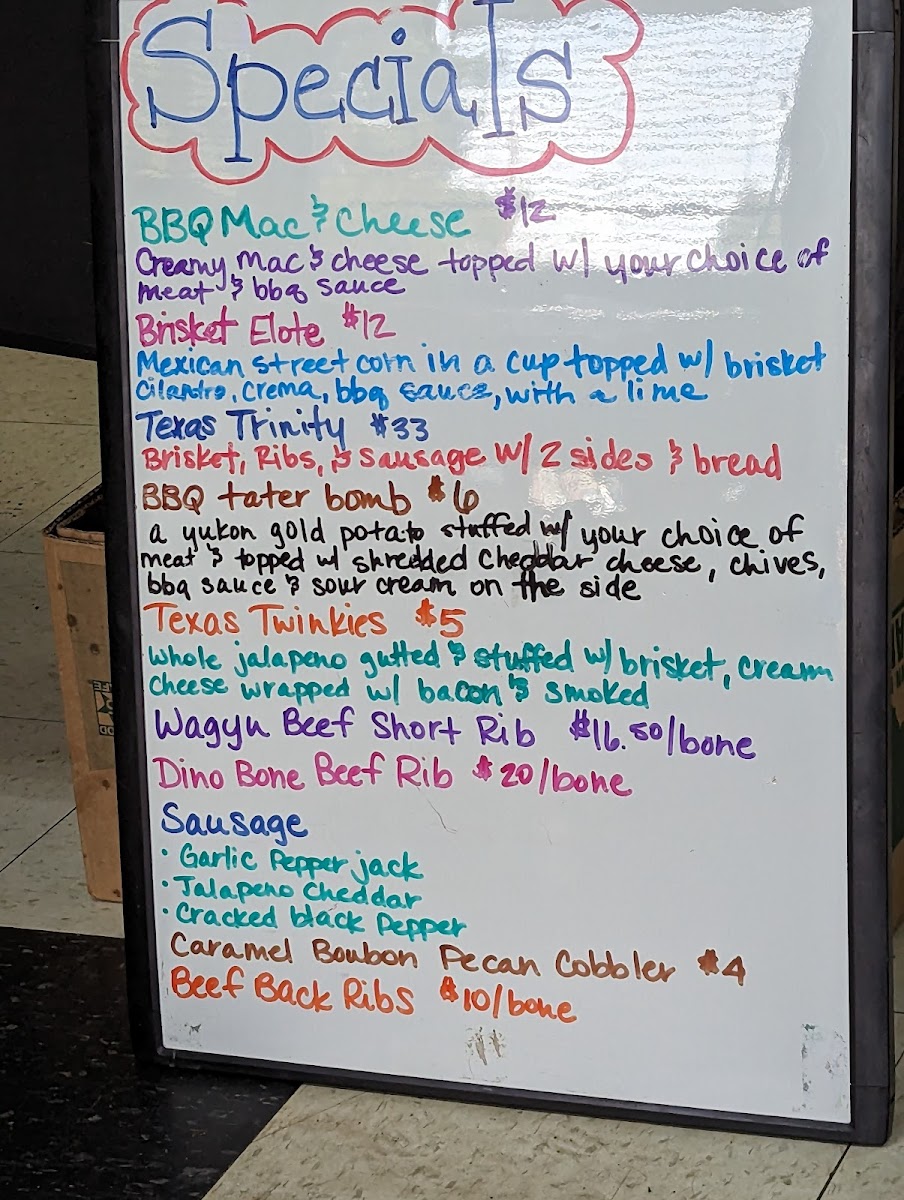 Specials
BBQ Mac & Cheese $12
Creamy Mac & cheese topped w/ your choice of
meat & bbq sauce
Brisket Elote $12
Mexican street corn in a cup topped w/ brisket
cilantro, crema, bbq sauce, with a lime
Texas Trinity $33
Brisket, Ribs, & sausage w/ 2 sides & bread
BBQ tater bomb $6
a yukon gold potato stuffed w/ your choice of
meat & topped w/ shredded Cheddar cheese, chives,
bbq sauce & sour cream on the side
Texas Twinkies $5
whole jalapeno gutted & stuffed w/ brisket, cream
cheese wrapped w/ bacon & smoked
Wagyu Beef Short Rib $16.50/bone
Dino Bone Beef Rib $20/bone
Sausage
· Garlic Pepper jack
· Jalapeno Cheddar
· Cracked black Pepper
Caramel Boubon Pecan Cobbler $4
Beef Back Ribs $10/bone